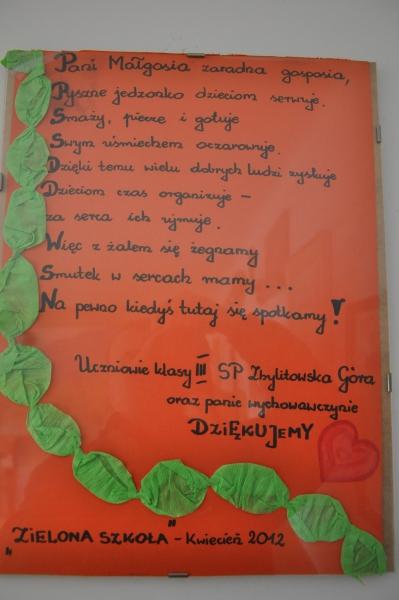 Pani Małgosia zaradna gosposia,
Pyszne jedzonko dzieciom serwuje.
Smaży, piecze i gotuje
Swym uśmiechem oczarowuje.
Dzięki temu wielu dobrych ludzi zyskuje
Dzieciom czas organizuje –
za serca ich ujmuje.
Więc z żalem się żegnamy
Smutek w sercach mamy ...
Na pewno kiedyś tutaj się spotkamy!
Uczniowie klasy III SP Zbylitowska Góra
oraz panie wychowawczynie
DZIĘKUJEMY
„ZIELONA SZKOŁA" - Kwiecień 2012